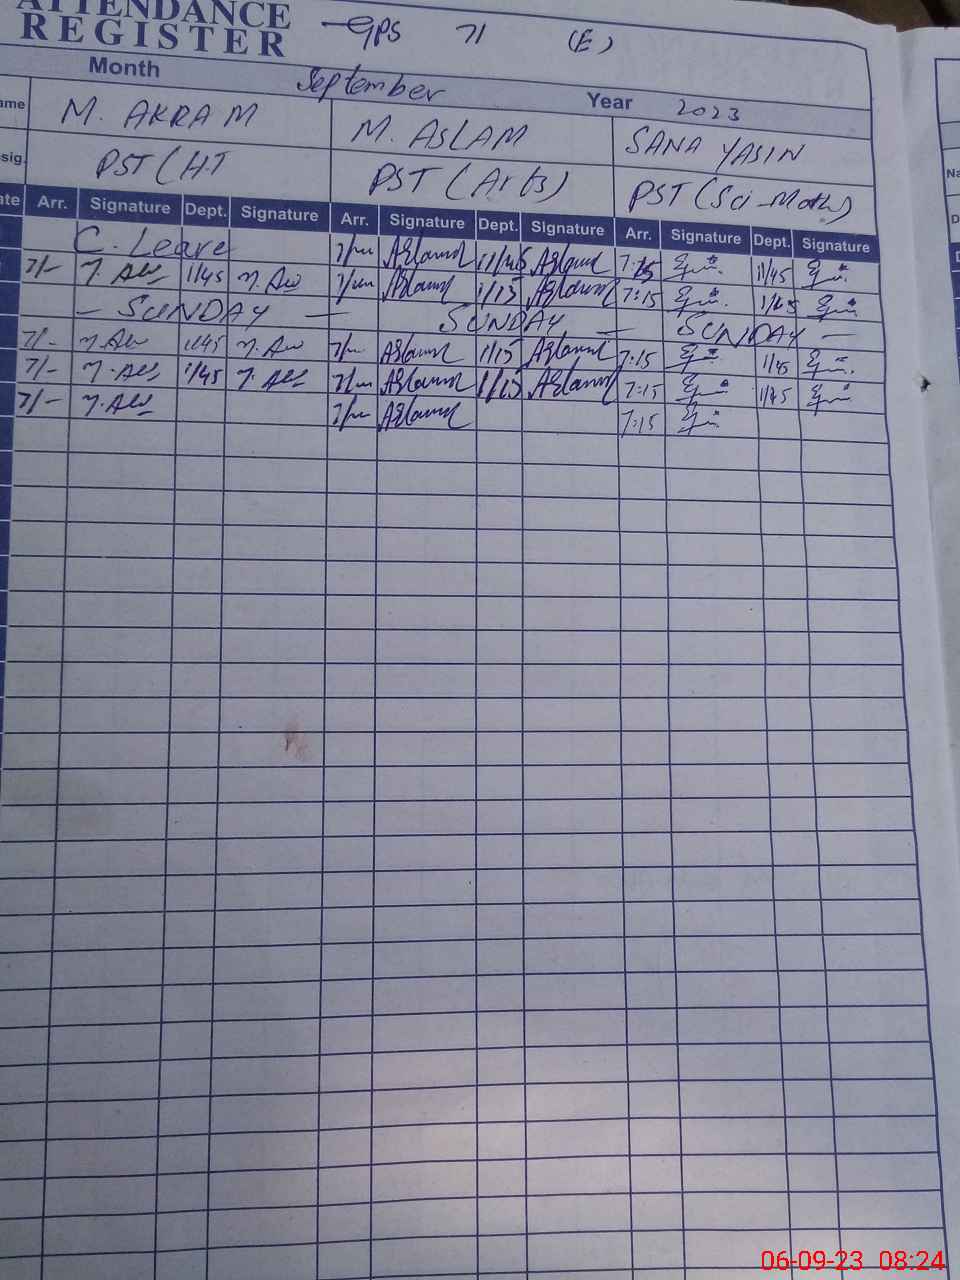 ATTENDANCE
REGISTER GPS 71 (E)
Month September Year 2023
ame M. AKRAM M. ASLAM SANA YASIN Na
sig. PST (H.T PST (Arts) PST (Sci-Math) D
ate Arr. Signature Dept. Signature Arr. Signature Dept. Signature Arr. Signature Dept. Signature
C. Leave Aslam 11/45 Aslam 7:15 11/45
7/- 1/45 Aslam 1/15 Aslam 7:15 1/45
— SUNDAY — SUNDAY — SUNDAY —
7/- 1/45 Aslam 1/15 Aslam 7:15 1/45
7/- 1/45 Aslam 1/15 Aslam 7:15 1/45
7/- Aslam 7:15
06-09-23 08:24